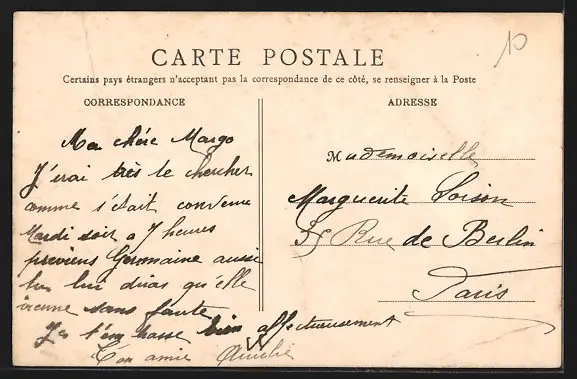 10
CARTE POSTALE
Certains pays étrangers n'acceptant pas la correspondance de ce côté, se renseigner à la Poste
CORRESPONDANCE
ADRESSE
Ma chère Margo
J'irai très te chercher
comme s'était convenu
Mardi soir a 7 heures
previens Germaine aussi
tu lui diras qu'elle
vienne sans faute
Je t'embrasse bien affectueusement
Ton amie
Mademoiselle
Marguerite Loison
Rue de Berlin
Paris